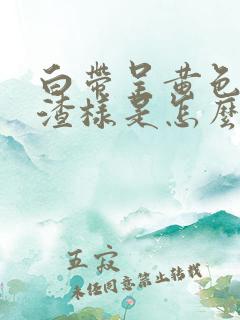 白带呈黄色
渣样是怎么
五寂
未经同意禁止转载